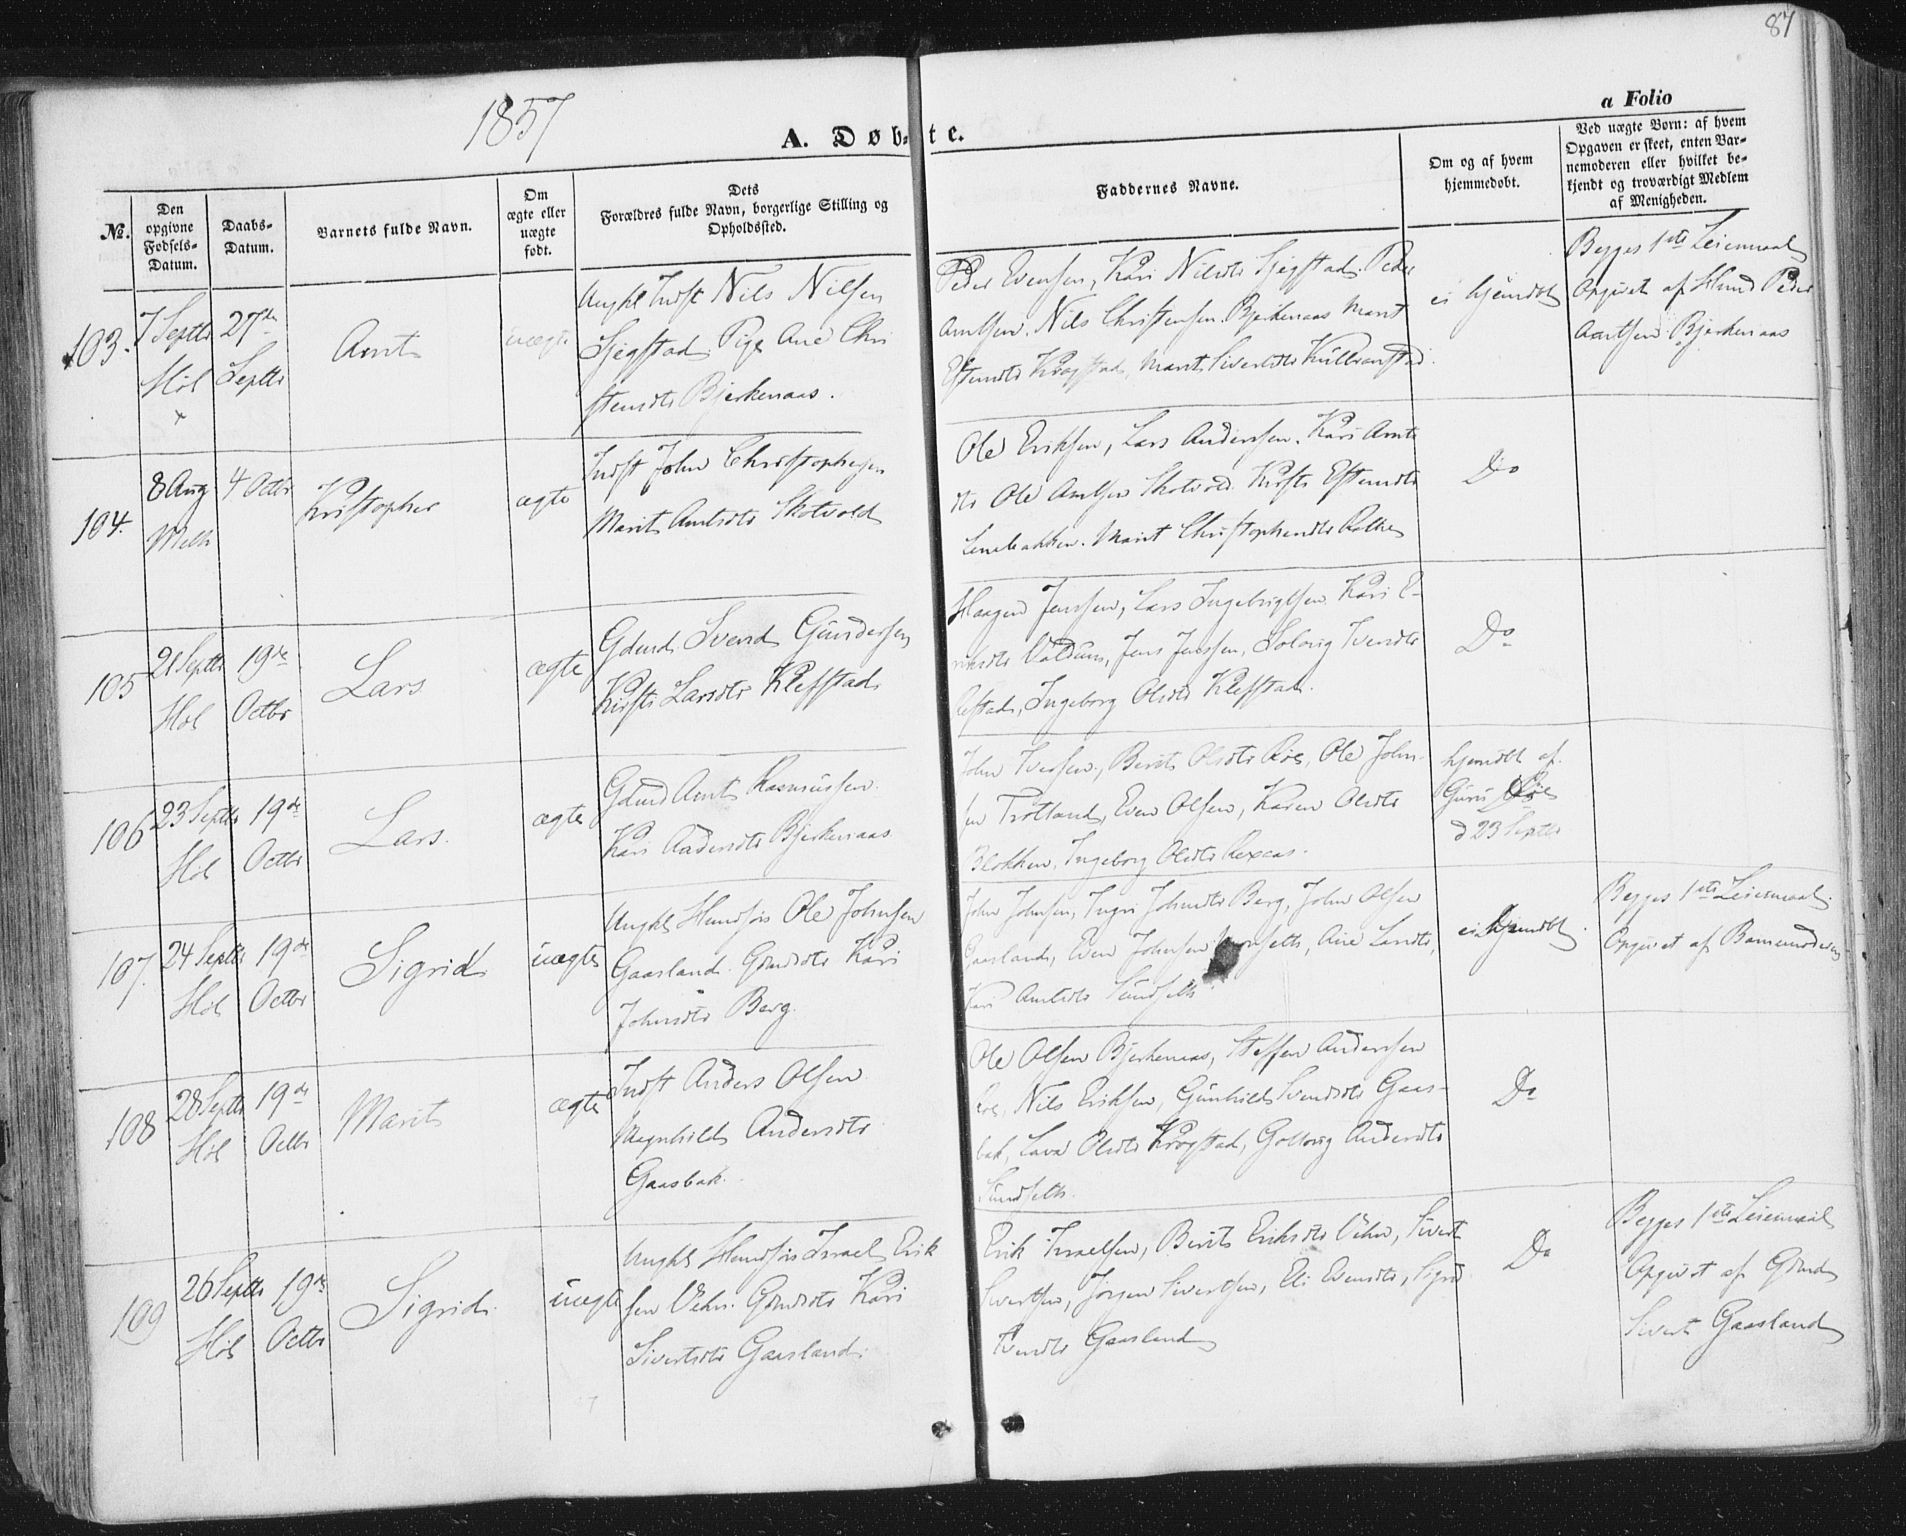 87
1857
a Folio
A. Døbte.
No.
Den opgivne Fødsels-Datum.
Daabs-Datum.
Barnets fulde Navn.
Om ægte eller uægte født.
Dets Forældres fulde Navn, borgerlige Stilling og Opholdssted.
Faddernes Navne.
Om og af hvem hjemmedøbt.
Ved uægte Børn: af hvem Opgaven er skeet, enten Barnemoderen eller hvilket bekjendt og troværdigt Medlem af Menigheden.
103.
7 Septbr
Høl
27de
Septbr
Arnt
uægte
Ungkl Indst Nils Nilsen
Sjegstad. Pige Ane Chri
stensdtr Bjerkenaas.
Peder Evensen, Kari Nilsdtr Sjegstad. Peder
Arntsen. Nils Christensen. Bjerkenaas Marit
Estensdtr Krogstad, Marit Sivertsdtr
ei hjemdøbt
Begges 1ste Leiermaal
Opgivet af Husmd Peder
Arntsen Bjerkenaas
104.
8 Aug
Melh
4 Octbr
Kristopher
ægte
Indst John Christophersen
Marit Arntsdtr Skotvold
Ole Eriksen, Lars Anderssen. Kari Arnts
dtr Ole Arntsen Skotvold. Kirsti Estensdtr
Lenebakken. Marit Christophersdtr
Do
105
21 Septbr
Høl
19de
Octbr
Lars
ægte
Gdmd Svend Gundersen
Kirsti Larsdtr Kleffstad
Haagen Jenssen, Lars Ingebrigtsen. Kari E-
riksdtr Valdum, Jens Jenssen, Solovig Svendsdtr
Ingeborg Olsdtr Kleffstad.
Do
106
23 Septbr
Høl
19de
Octbr
Lars.
ægte
Gdmd Arnt Rasmussen.
Kari Andersdtr Bjerkenaas
John Iversen, Berit Olsdtr Røe, Ole John-
sen Trotland, Even Olsen, Karen Olsdtr
Blokken, Ingeborg Olsdtr Rexaas.
hjemdøbt af
Guru Røe
d 23 Septbr
107.
24 Septbr
Høl
19de
Octbr
Sigrid
uægte
Ungkl Husmdsøn Ole Johnsen
Gaasland. Gdmdsdtr Kari
Johnsdtr Berg.
John Johnsen, Ingri Johnsdtr Berg, John Olsen
Gaasland, Even Johnsen Ane Larsdtr,
Kari Arntsdtr Sundseth
ei hjemdøbt.
Begges 1ste Leiermaal.
Opgivet af Barnemoderen
108
28 Septbr
Høl
19de
Octbr
Marit
ægte
Indst Anders Olsen
Magnhild Andersdtr
Gaasbak.
Ole Olsen Bjerkenaas, Steffen Anderssen
Røe, Nils Eriksen, Gunhild Svendsdtr Gaas-
bak, Lava Olsdtr Krogstad, Gollovig Andersdtr
Sundseth.
Do
109
26 Septbr
Høl
19de
Octbr
Sigrid.
uægte
Ungkl Husmdsøn Israel Erik
sen Vehn. Gdmdsdtr Kari
Sivertsdtr Gaasland.
Erik Israelsen, Berit Eriksdtr Vehn, Sivert
Sivertsen, Jørgen Sivertsen, Eli Evensdtr, Sigrd
Evensdtr Gaasland
Do
Begges 1ste Leiermaal
Opgivet af Gdmd
Sivert Gaasland